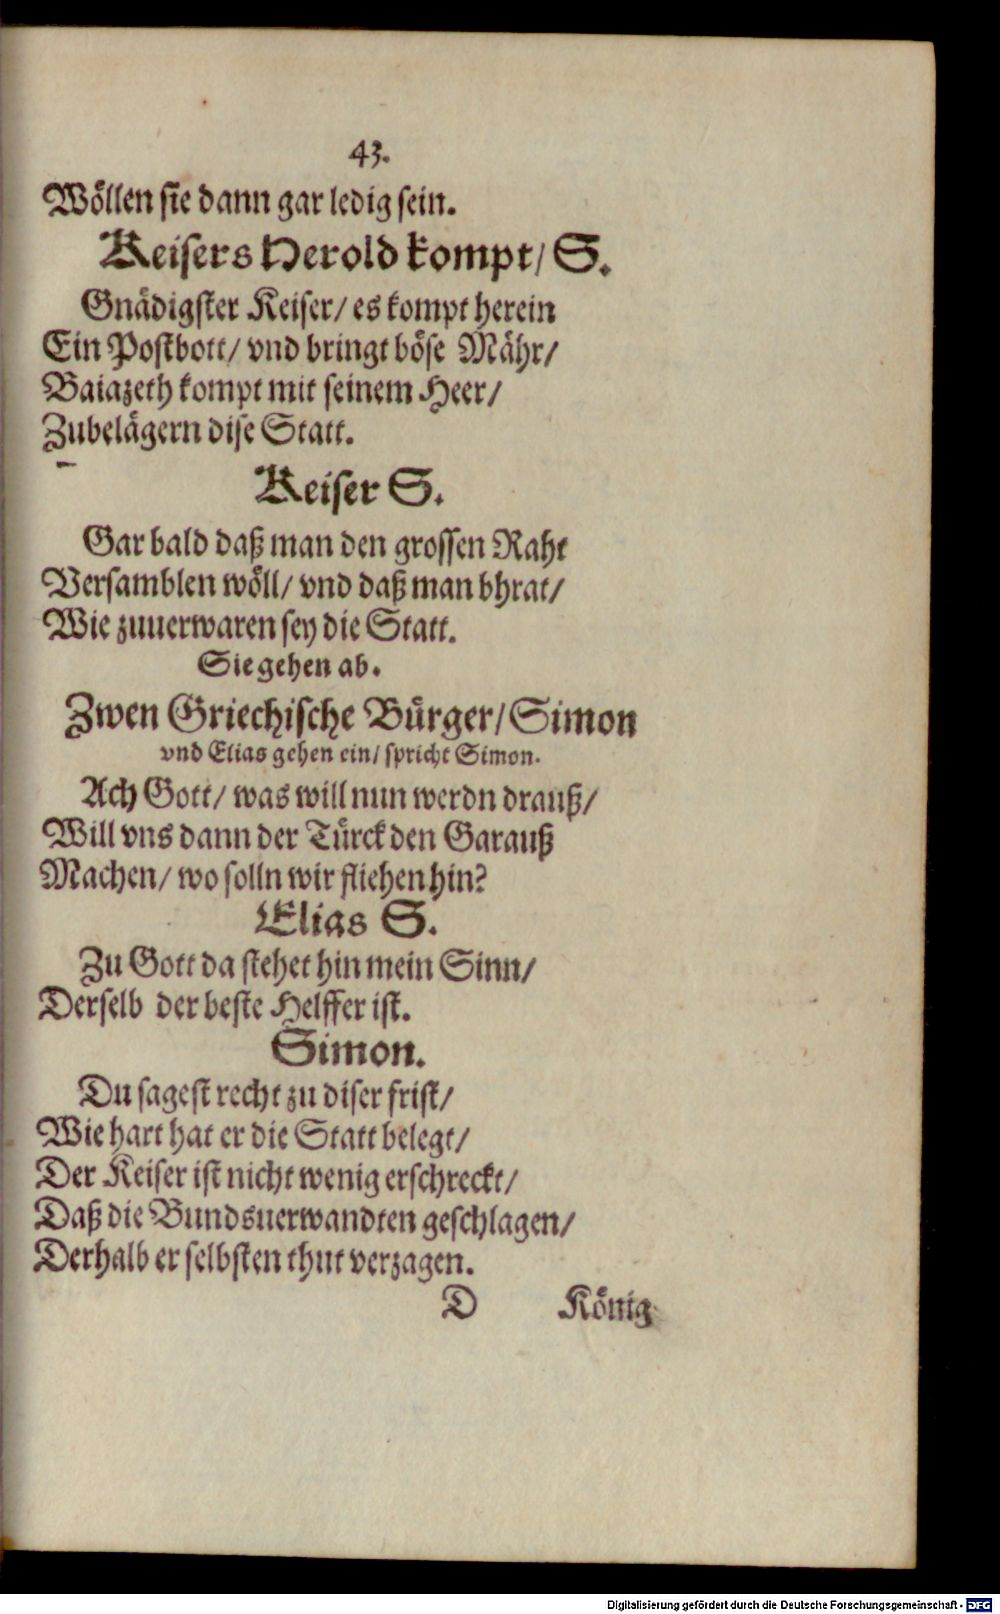 43.
Wöllen sie dann gar ledig sein.
Keisers Herold kompt/ S.
Gnädigster Keiser/ es kompt herein
Ein Postbott/ vnd bringt böse Mähr/
Baiazeth kompt mit seinem Heer/
Zubelägern dise Statt.
Keiser S.
Gar bald daß man den grossen Raht
Versamblen wöll/ vnd daß man bhrat/
Wie zuuerwaren sey die Statt.
Sie gehen ab.
Zwen Griechische Bürger/ Simon
vnd Elias gehen ein/ spricht Simon.
Ach Gott/ was will nun werdn drauß/
Will vns dann der Türck den Garauß
Machen/ wo solln wir fliehen hin?
Elias S.
Zu Gott da stehet hin mein Sinn/
Derselb der beste Helffer ist.
Simon.
Du sagest recht zu diser frist/
Wie hart hat er die Statt belegt/
Der Keiser ist nicht wenig erschreckt/
Daß die Bundsuerwandten geschlagen/
Derhalb er selbsten thut verzagen.
D König
Digitalisierung gefördert durch die Deutsche Forschungsgemeinschaft - DFG